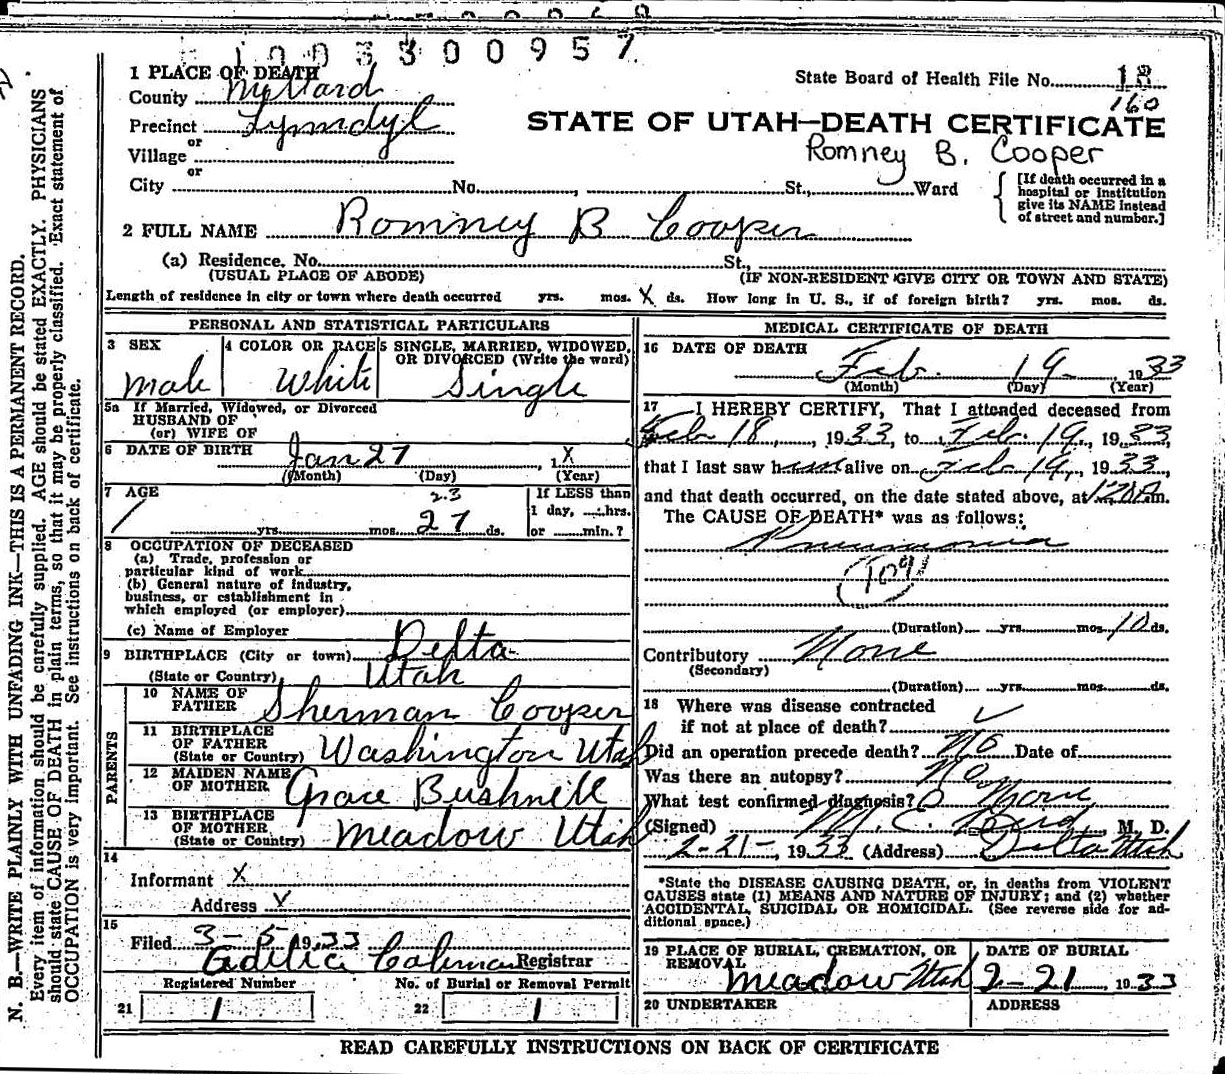 1003300957
1 PLACE OF DEATH
State Board of Health File No. 18
County Millard
160
Precinct Lynndyl
STATE OF UTAH—DEATH CERTIFICATE
or
Romney B. Cooper
Village
or
City No. St., Ward
[If death occurred in a
hospital or institution
give its NAME instead
of street and number.]
2 FULL NAME Romney B Cooper
(a) Residence. No. St.,
(USUAL PLACE OF ABODE) (IF NON-RESIDENT GIVE CITY OR TOWN AND STATE)
Length of residence in city or town where death occurred yrs. mos. X ds. How long in U. S., if of foreign birth? yrs. mos. ds.
PERSONAL AND STATISTICAL PARTICULARS
3 SEX
Male
4 COLOR OR RACE
White
5 SINGLE, MARRIED, WIDOWED,
OR DIVORCED (Write the word)
Single
5a If Married, Widowed, or Divorced
HUSBAND OF
(or) WIFE OF
6 DATE OF BIRTH Jan 27, 1X
(Month) (Day) (Year)
7 AGE
23
1 yrs. mos. 27 ds.
If LESS than
1 day, hrs.
or min.?
8 OCCUPATION OF DECEASED
(a) Trade, profession or
particular kind of work
(b) General nature of industry,
business, or establishment in
which employed (or employer)
(c) Name of Employer
9 BIRTHPLACE (City or town) Delta
(State or Country) Utah
PARENTS
10 NAME OF
FATHER Sherman Cooper
11 BIRTHPLACE
OF FATHER
(State or Country) Washington Utah
12 MAIDEN NAME
OF MOTHER Grace Bushnell
13 BIRTHPLACE
OF MOTHER
(State or Country) Meadow Utah
14
Informant X
Address X
15
Filed 3-5 1933
Coleman Registrar
Registered Number No. of Burial or Removal Permit
21 1 22 1
MEDICAL CERTIFICATE OF DEATH
16 DATE OF DEATH
Feb. 19 1933
(Month) (Day) (Year)
17 I HEREBY CERTIFY, That I attended deceased from
Feb 18, 1933, to Feb. 19, 1933,
that I last saw him alive on Feb 19, 1933,
and that death occurred, on the date stated above, at m.
The CAUSE OF DEATH* was as follows:
Pneumonia
109
(Duration) yrs. mos. 10 ds.
Contributory None
(Secondary)
(Duration) yrs. mos. ds.
18 Where was disease contracted
if not at place of death?
Did an operation precede death? No Date of
Was there an autopsy? No
What test confirmed diagnosis? None
(Signed) M. E. Bird M. D.
2-21-, 1933 (Address) Delta Utah
*State the DISEASE CAUSING DEATH, or, in deaths from VIOLENT
CAUSES state (1) MEANS AND NATURE OF INJURY; and (2) whether
ACCIDENTAL, SUICIDAL OR HOMICIDAL. (See reverse side for ad-
ditional space.)
19 PLACE OF BURIAL, CREMATION, OR
REMOVAL
Meadow Utah
DATE OF BURIAL
2-21, 1933
20 UNDERTAKER ADDRESS
READ CAREFULLY INSTRUCTIONS ON BACK OF CERTIFICATE
N. B.—WRITE PLAINLY WITH UNFADING INK—THIS IS A PERMANENT RECORD.
Every item of information should be carefully supplied. AGE should be stated EXACTLY. PHYSICIANS
should state CAUSE OF DEATH in plain terms, so that it may be properly classified. Exact statement of
OCCUPATION is very important. See instructions on back of certificate.